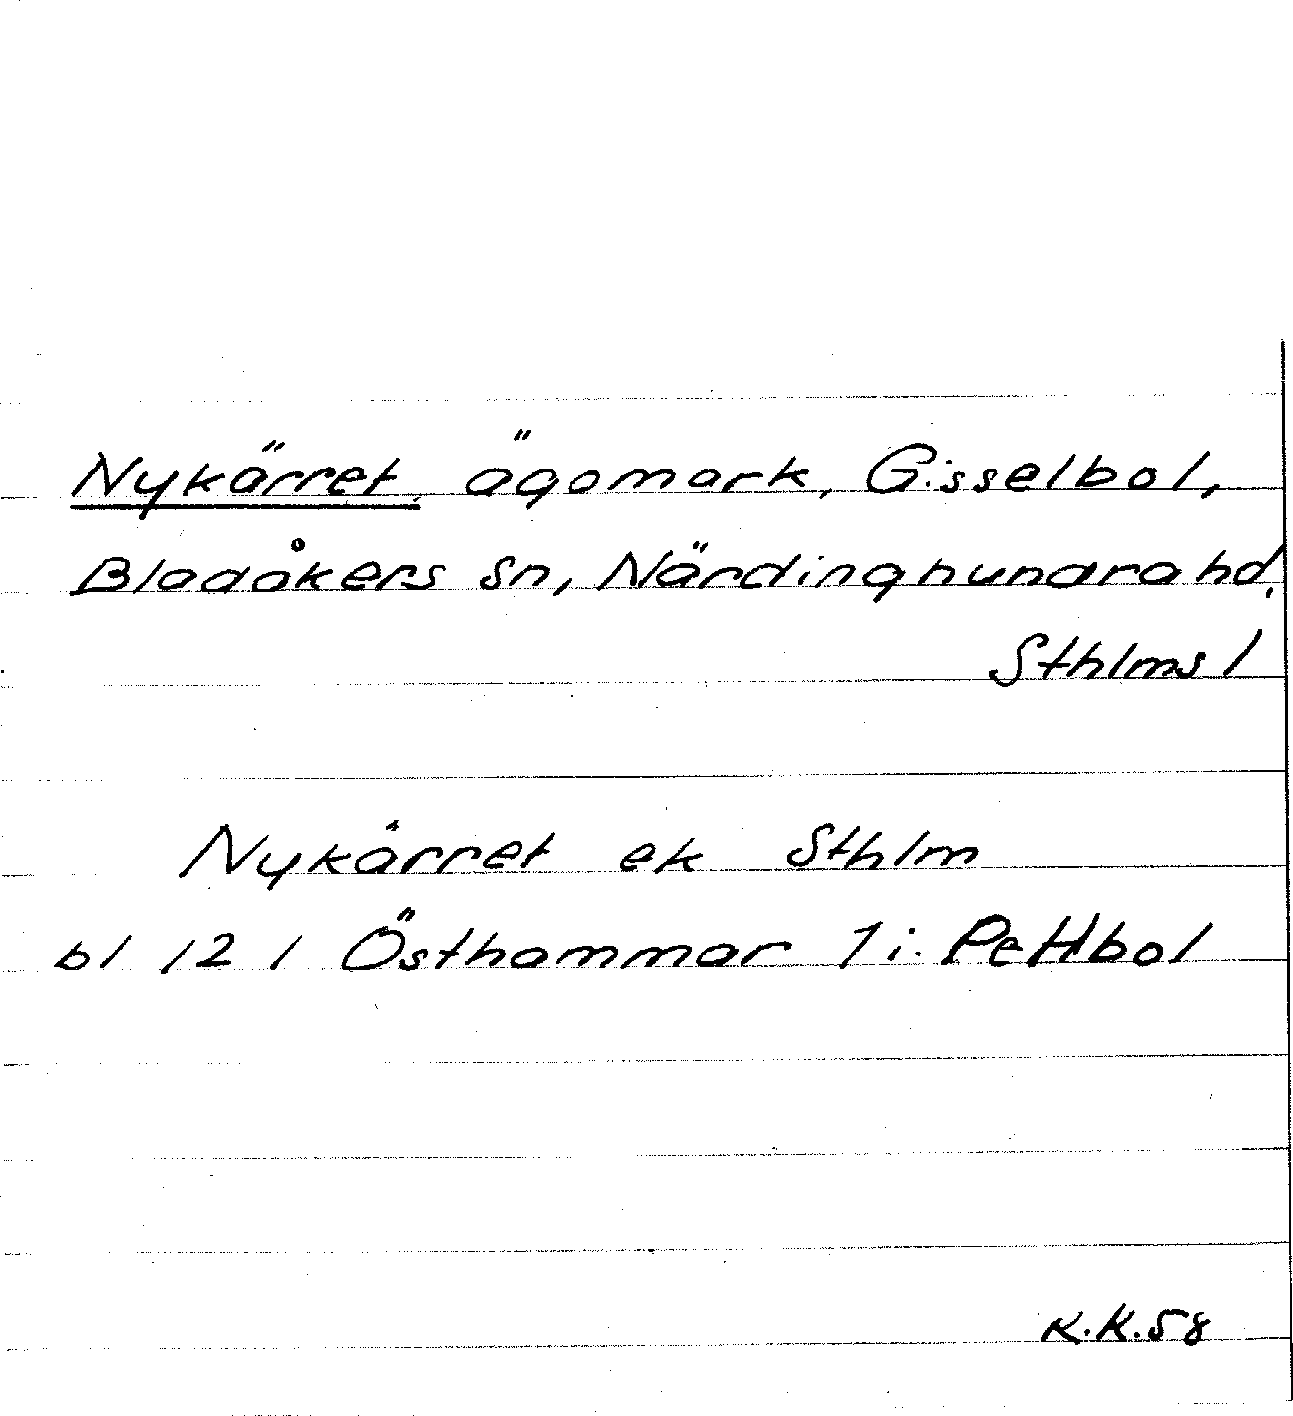 Nykärret, ägomark, Gisselbol,
Bladåkers sn, Närdinghundra hd,
Sthlms l
Nykärret ek Sthlm
bl 12 1 Östhammar 7 i. Pettbol
K.K.58